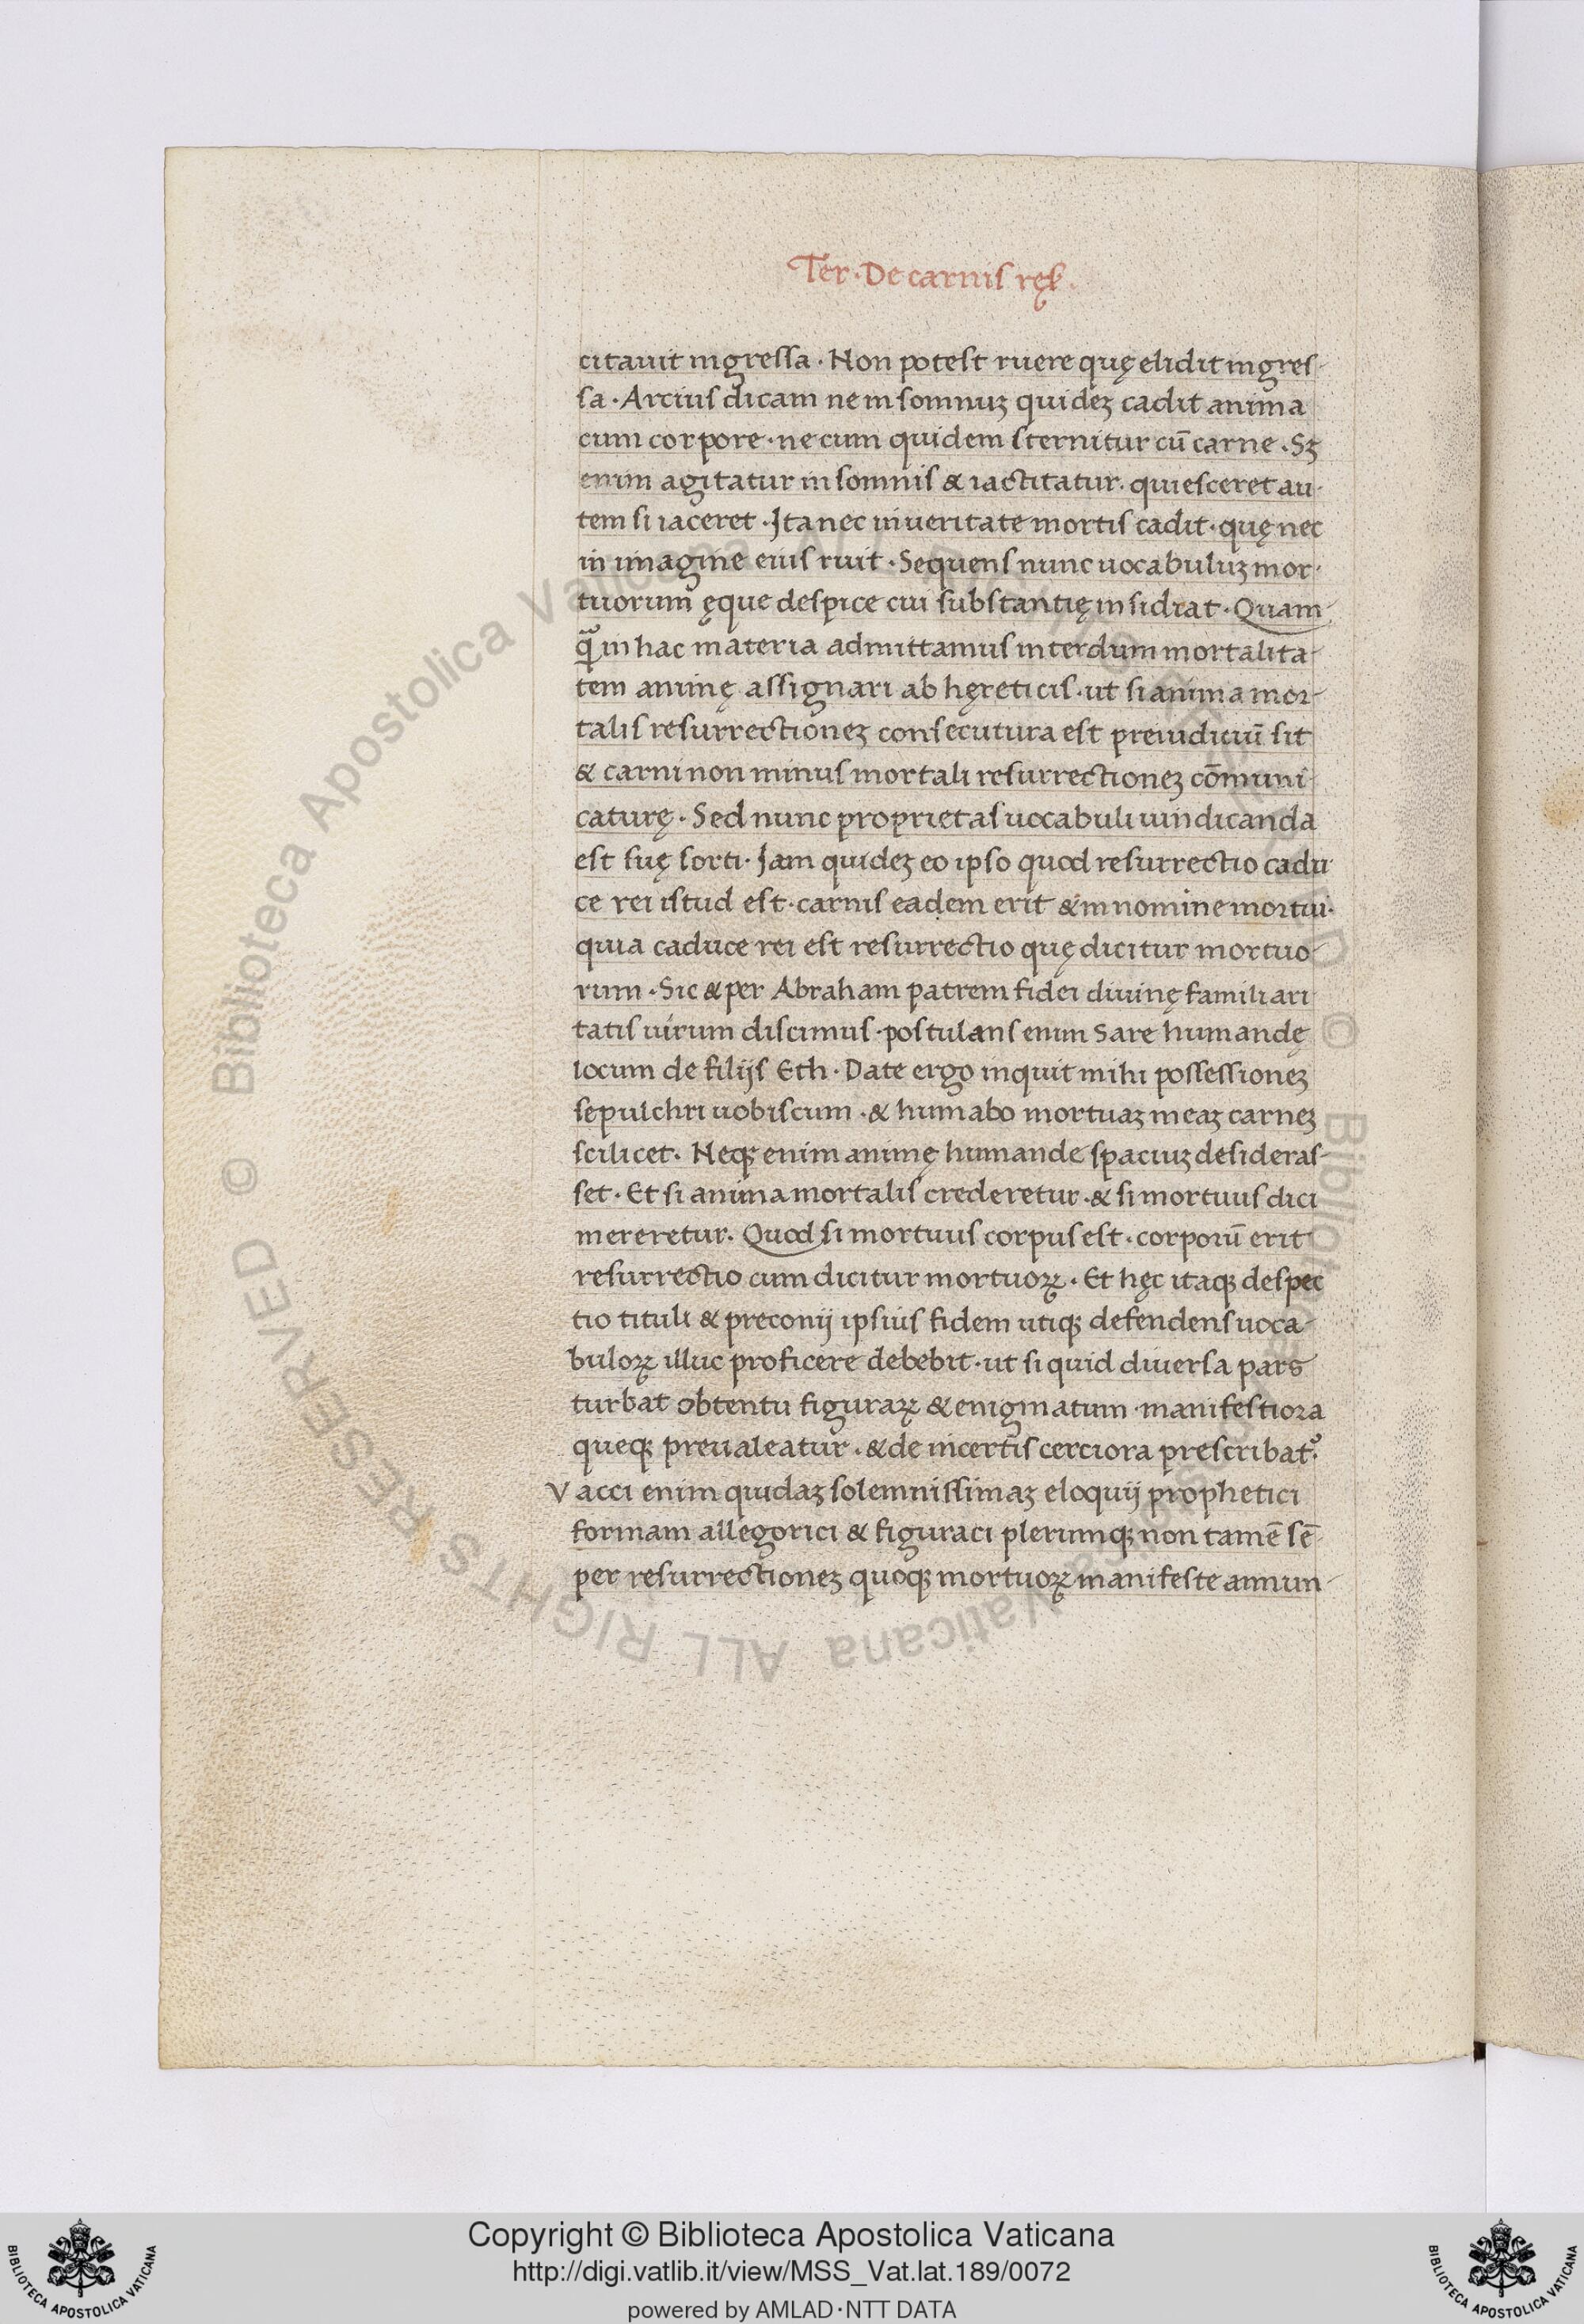 Ter · De carnis ręs.
citauit ingressa · Non potest ruere quę elidit ingres-
sa · Arcius dicam ne in somnuꝫ quideꝫ cadit anima
cum corpore · ne cum quidem sternitur cū carne · Sꝫ
enim agitatur in somnis & iactitatur. quiesceret au-
tem si iaceret · Ita nec in ueritate mortis cadit · quę nec
in imagine eius ruit · Sequens nunc uocabuluꝫ mor-
tuorum ęque despice cui substantię insidiat · Quam
in hac materia admittamus interdum mortalita-
tem animę assignari ab hęreticis · ut si anima mor-
talis resurrectioneꝫ consecutura est preiudiciū sit
& carni non minus mortali resurrectioneꝫ cōmuni-
caturę · Sed nunc proprietas uocabuli uindicanda
est suę sorti · Iam quideꝫ eo ipso quod resurrectio cadu-
ce rei istud est · carnis eadem erit & in nomine mortui·
quia caduce rei est resurrectio quę dicitur mortuo-
rum · Sic & per Abraham patrem fidei diuinę familiari
tatis uirum discimus · postulans enim Sare humandę
locum de filijs Eth · Date ergo inquit mihi possessioneꝫ
sepulchri uobiscum · & humabo mortuaꝫ meaꝫ carneꝫ
scilicet. Neqꝫ enim animę humande spaciuꝫ desideras-
set · Et si anima mortalis crederetur · & si mortuus dici
mereretur. Quod si mortuus corpus est · corporū erit
resurrectio cum dicitur mortuoꝝ · Et hęc itaqꝫ despec
tio tituli & preconij ipsius fidem utiqꝫ defendens uoca-
buloꝝ illuc proficere debebit · ut si quid diuersa pars
turbat obtentu figuraꝝ & enigmatum manifestiora
queqꝫ preualeatur · & de incertis cerciora prescribat᷒.
Vacci enim quidaꝫ solemnissimaꝫ eloquij prophetici
formam allegorici & figuraci plerumqꝫ non tamē sē-
per resurrectioneꝫ quoqꝫ mortuoꝝ manifeste annun-
© Biblioteca Apostolica Vaticana ALL RIGHTS RESERVED © Biblioteca Apostolica Vaticana ALL RIGHTS RESERVED
Copyright © Biblioteca Apostolica Vaticana
http://digi.vatlib.it/view/MSS_Vat.lat.189/0072
powered by AMLAD·NTT DATA
BIBLIOTECA APOSTOLICA VATICANA
BIBLIOTECA APOSTOLICA VATICANA